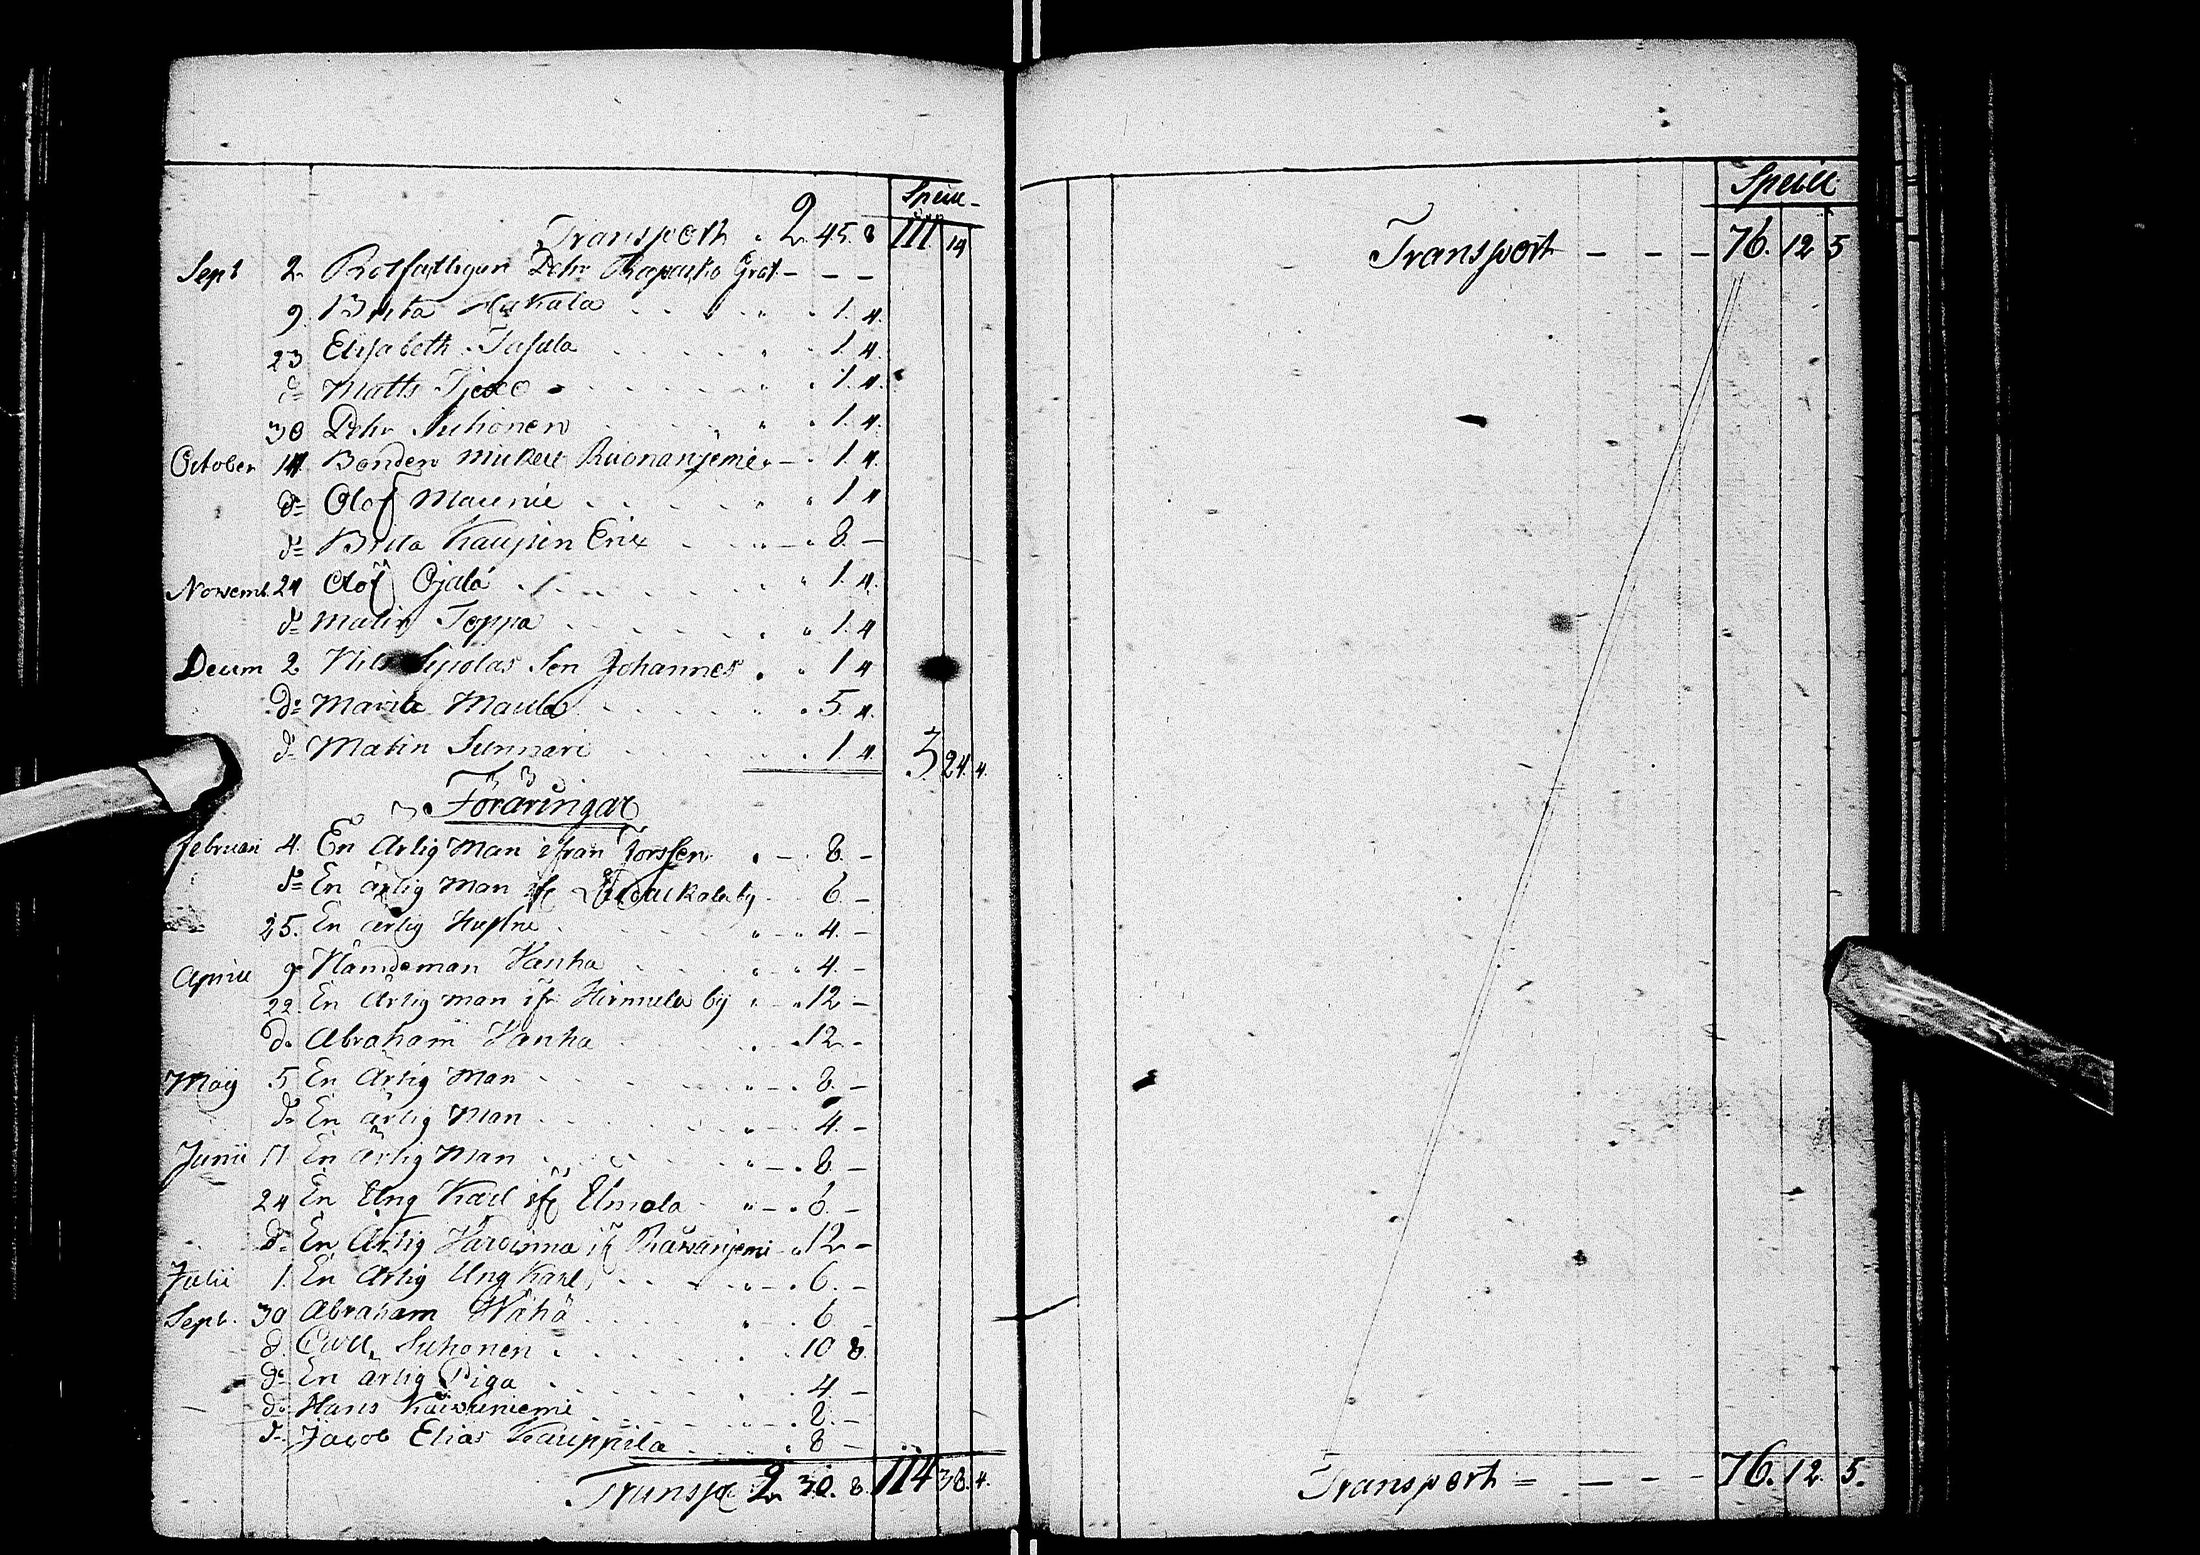 Specie
Transport 2. 45. 8 111 14
Sept 2. Rotfattigan Pehr Grat. – – –
9. Brita 1. 4.
23 Elisabeth 1. 4.
d:o Matts 1. 4.
30 Pehr Suhonen 1. 4.
October 14 Bonden Mickell Ruonaniemi – 1. 4.
d:o Olof Maunu 1 4
d:o Brita Kaupin Erix – 8. –
Novemb. 24 Olof Ojala 1. 4.
d:o Malin Toppa 1. 4
Decem 2. Nils Sipolas Sen Johannes 1 4
d:o Marita Maula 5. 4.
d:o Malin Sunnari 1 4. 3 24. 4.
Föräringar
Februari 4. En Ärlig Man ifrån Torssen – 8. –
d:o En ärlig man if by 6. –
25. En ärlig Hustru – 4. –
Aprill 9 Nämdeman Vanha 4. –
22. En Ärlig man ifr Hirmula by 12 –
d:o Abraham Vanha 12. –
Maij 5 En Ärlig Man – 8. –
d:o En ärlig Man 4. –
Junii 17 En ärlig Man – 8. –
24 En Ung Karl ifr Elmola – 6. –
d:o En Ärlig Värdinna if Råwaniemi 12 –
Julii 1. En Ärlig Ung Karl – 6. –
Sept. 30 Abraham Wähä 6. –
d:o Carl Suhonen 10 8.
d:o En ärlig Piga 4. –
d:o Hans 8. –
d:o Jacob Elias Kauppila 8 –
Transp 2. 30. 8. 114 38. 4.
Specie
Transport – – – 76. 12 5
Transport = – – – 76. 12. 5.